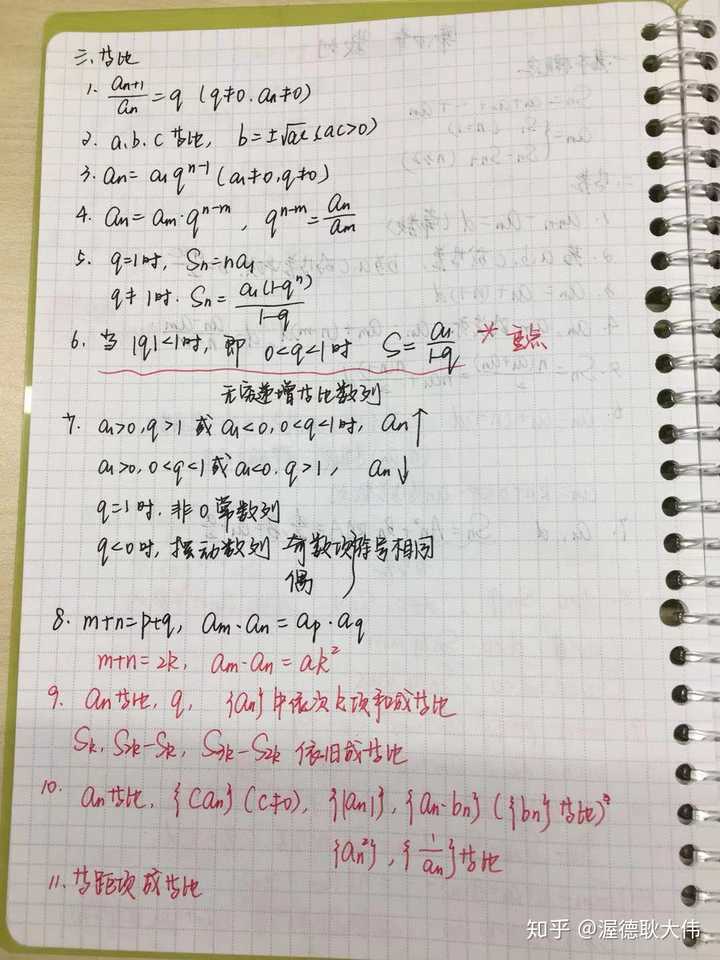 三.等比
1. aₙ₊₁/aₙ = q (q≠0. aₙ≠0)
2. a.b.c 等比, b=±√ac (ac>0)
3. aₙ = a₁qⁿ⁻¹ (a₁≠0,q≠0)
4. aₙ = aₘ·qⁿ⁻ᵐ, qⁿ⁻ᵐ = aₙ/aₘ
5. q=1时, Sₙ=na₁
q≠1时. Sₙ = a₁(1-qⁿ)/(1-q)
6. 当 |q|<1时, 即 0<q<1时 S = a₁/(1-q) * 重点
无穷递增等比数列
7. a₁>0,q>1 或 a₁<0,0<q<1时, aₙ↑
a₁>0,0<q<1或a₁<0.q>1, aₙ↓
q=1时.非0常数列
q<0时,摆动数列 奇数项符号相同
偶
8. m+n=p+q, aₘ·aₙ = aₚ·a_q
m+n=2k, aₘ·aₙ = aₖ²
9. aₙ等比, q, {aₙ}中依次k项和成等比
Sₖ, S₂ₖ-Sₖ, S₃ₖ-S₂ₖ 依旧成等比
10. aₙ等比, {Caₙ} (C≠0), {|aₙ|}, {aₙ·bₙ} ({bₙ}等比)
{aₙ²}, {1/aₙ}等比
11.等距项成等比
知乎 @渥德耿大伟